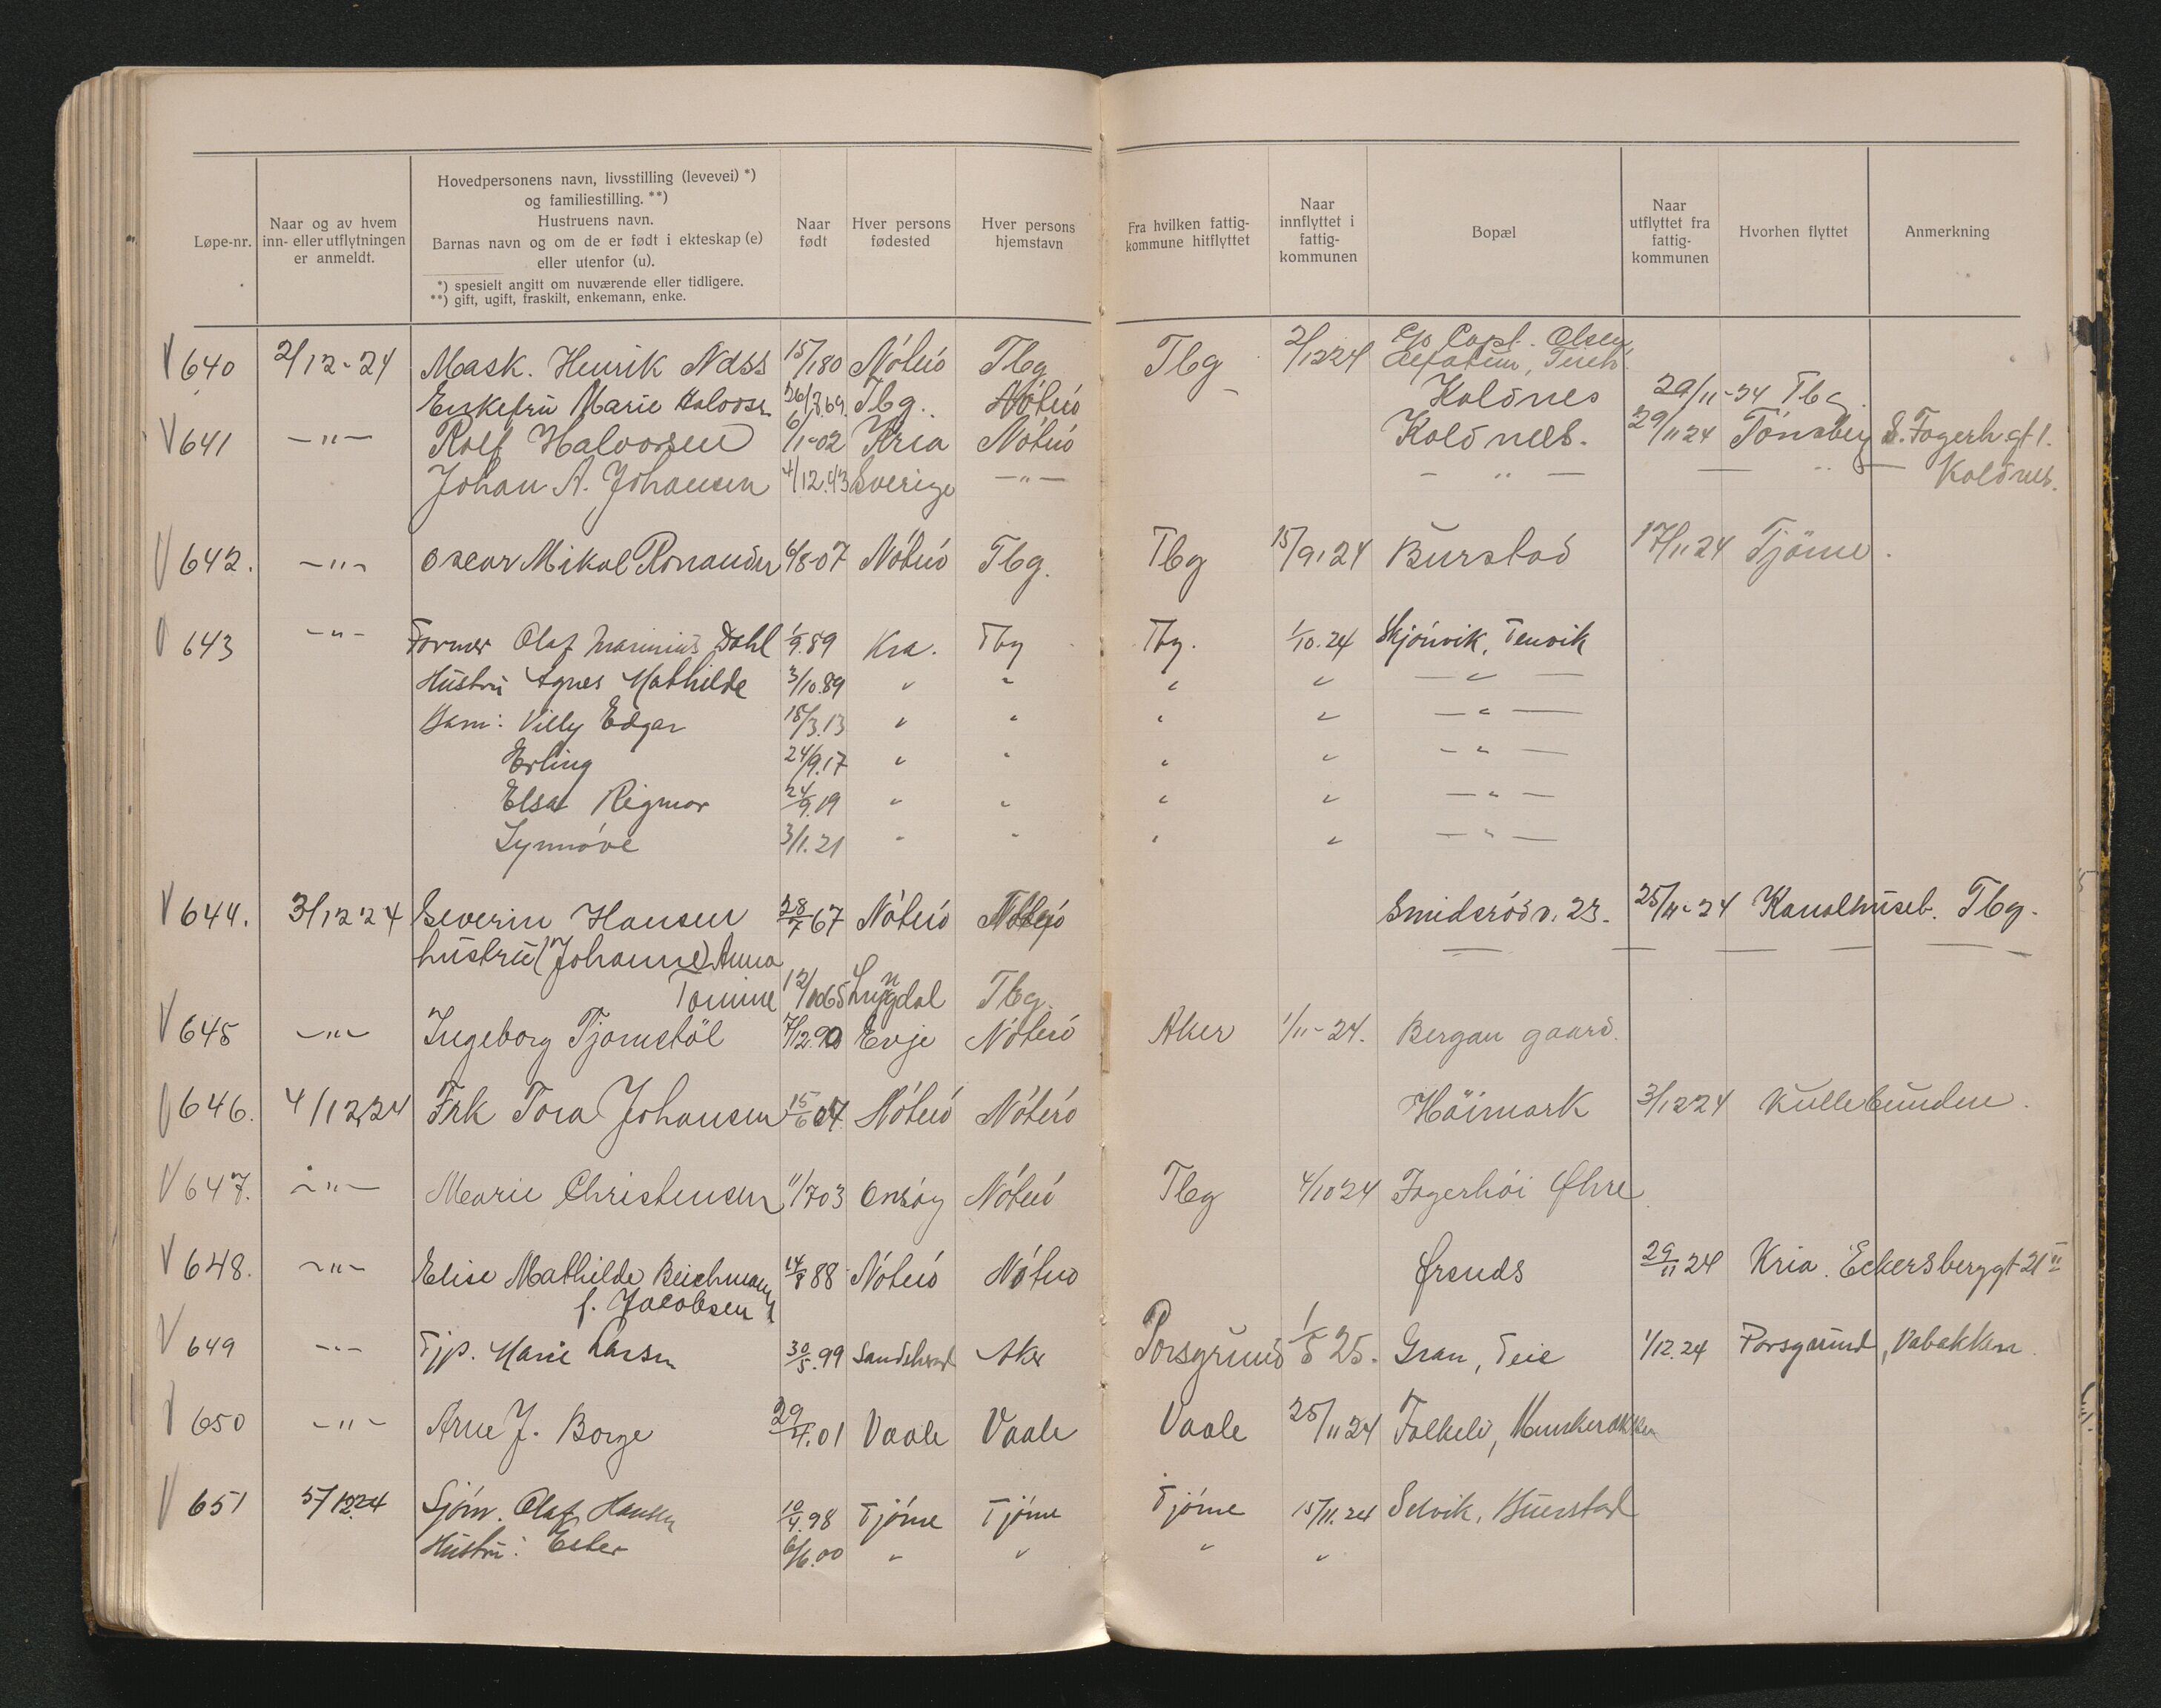 Løpe-nr.
Naar og av hvem
inn- eller utflytningen
er anmeldt.
Hovedpersonens navn, livsstilling (levevei) *)
og familiestilling. **)
Hustruens navn.
Barnas navn og om de er født i ekteskap (e)
eller utenfor (u).
*) spesielt angitt om nuværende eller tidligere.
**) gift, ugift, fraskilt, enkemann, enke.
Naar
født
Hver persons
fødested
Hver persons
hjemstavn
Fra hvilken fattig-
kommune hitflyttet
Naar
innflyttet i
fattig-
kommunen
Bopæl
Naar
utflyttet fra
fattig-
kommunen
Hvorhen flyttet
Anmerkning
V 640 2/12-24 Mask. Henrik Næss 15/1 80 Nóteró Tbg Tbg 2/12 24 C/o Capt. Olsen
Enkefru Marie Halvors. 26/8.69. Tbg. Nóteró Kolónes 29/11-24 Tbg.
V 641 -"- Rolf Halvorsen 6/11-02 Kria Nóteró Kolónes. 29/11 24 Tónsberg S. Fagerh.gt 1.
Johan A. Johansen 4/12.43 Sverige -"- - " - - " - Kolónes.
V 642. -"- Oscar Mikal Ronander 6/8-07 Nóteró Tbg. Tbg 15/9-24 Burstad 17/11 24 Tjöme.
V 643 -"- Former Olaf Marinius Dahl 1/9.89 Kra. Tbg Tbg. 1/10.24 Skjónvik, Tenvik
Hustru Agnes Mathilde 3/10.89 " " " " - " -
Barn: Villy Edgar 18/3.13 " " " " - " -
Erling 24/9.17 " " " " - " -
Elsa Rigmor 24/9.19 " " " " - " -
Synnóve 3/1.21 " " " " - " -
V 644. 3/12 24 Severin Hansen 28/7 67 Nóteró Nóteró Smidsród v. 23. 25/11-24 Kanalhuseb. Tbg.
hustru (Johanne) Anna
Tomine 12/10 65 Lyngdal Tbg.
V 645 -"- Ingeborg Tjomstöl 7/12.90 Evje Nóteró Aker 1/11-24. Bergan gaard.
V 646. 4/12 24 Frk Tora Johansen 15/6 07. Nóteró Nóteró Höimark 3/12 24 Kullebunden.
V 647. -"- Marie Christensen 11/7 03 Onsóy Nóteró Tbg 4/10 24 Fagerhói Øhre
V 648. -"- Elise Mathilde Beichmann 14/8 88 Nóteró Nóteró Ørsnes 29/11 24 Kria. Eckersberggt 21 II
f. Jacobsen
V 649 -"- Tjp. Marie Larsen 30/5.99 Sandeherad Aker Porsgrund 1/5 25. Gran, Teie 1/12.24 Porsgrund, Vabakken.
V 650 -"- Arne J. Borge 29/4.01 Vaale Vaale Vaale 25/11 24 Solheim, Munkerekken
V 651 5/12 24 Sjóm. Olaf Hansen 10/4.98 Tjóme Tjóme Tjóme 15/11.24 Selvik, Buerstad
Hustru: Ester 6/6.00 " " " "